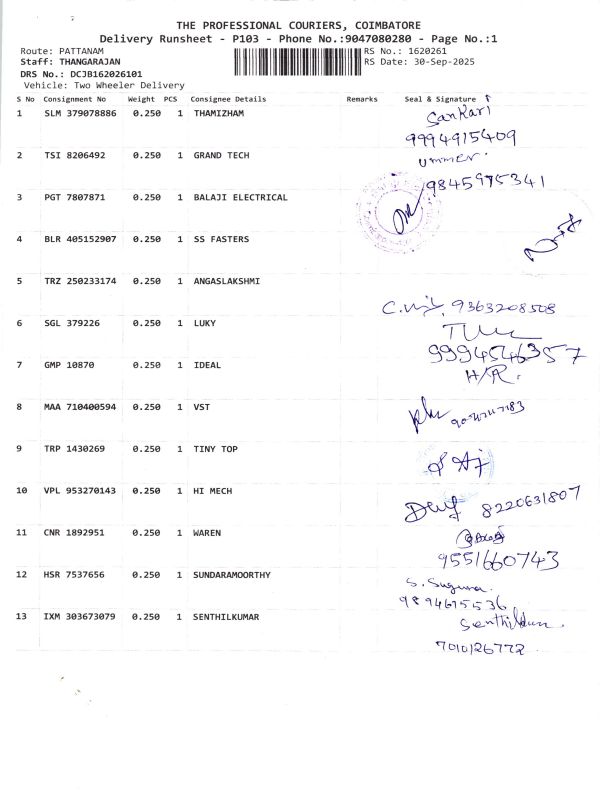 THE PROFESSIONAL COURIERS, COIMBATORE
Delivery Runsheet - P103 - Phone No.:9047080280 - Page No.:1
Route: PATTANAM RS No.: 1620261
Staff: THANGARAJAN RS Date: 30-Sep-2025
DRS No.: DCJB162026101
Vehicle: Two Wheeler Delivery
S No Consignment No Weight PCS Consignee Details Remarks Seal & Signature
1 SLM 379078886 0.250 1 THAMIZHAM Sankari
9994915409
2 TSI 8206492 0.250 1 GRAND TECH Ummer.
9845975341
3 PGT 7807871 0.250 1 BALAJI ELECTRICAL
4 BLR 405152907 0.250 1 SS FASTERS
5 TRZ 250233174 0.250 1 ANGASLAKSHMI
9363208508
6 SGL 379226 0.250 1 LUKY
9994546357
7 GMP 10870 0.250 1 IDEAL H/R.
8 MAA 710400594 0.250 1 VST
9 TRP 1430269 0.250 1 TINY TOP
10 VPL 953270143 0.250 1 HI MECH 8220631807
11 CNR 1892951 0.250 1 WAREN
9551660743
12 HSR 7537656 0.250 1 SUNDARAMOORTHY S. Suguna.
9894675536
13 IXM 303673079 0.250 1 SENTHILKUMAR
7010126772